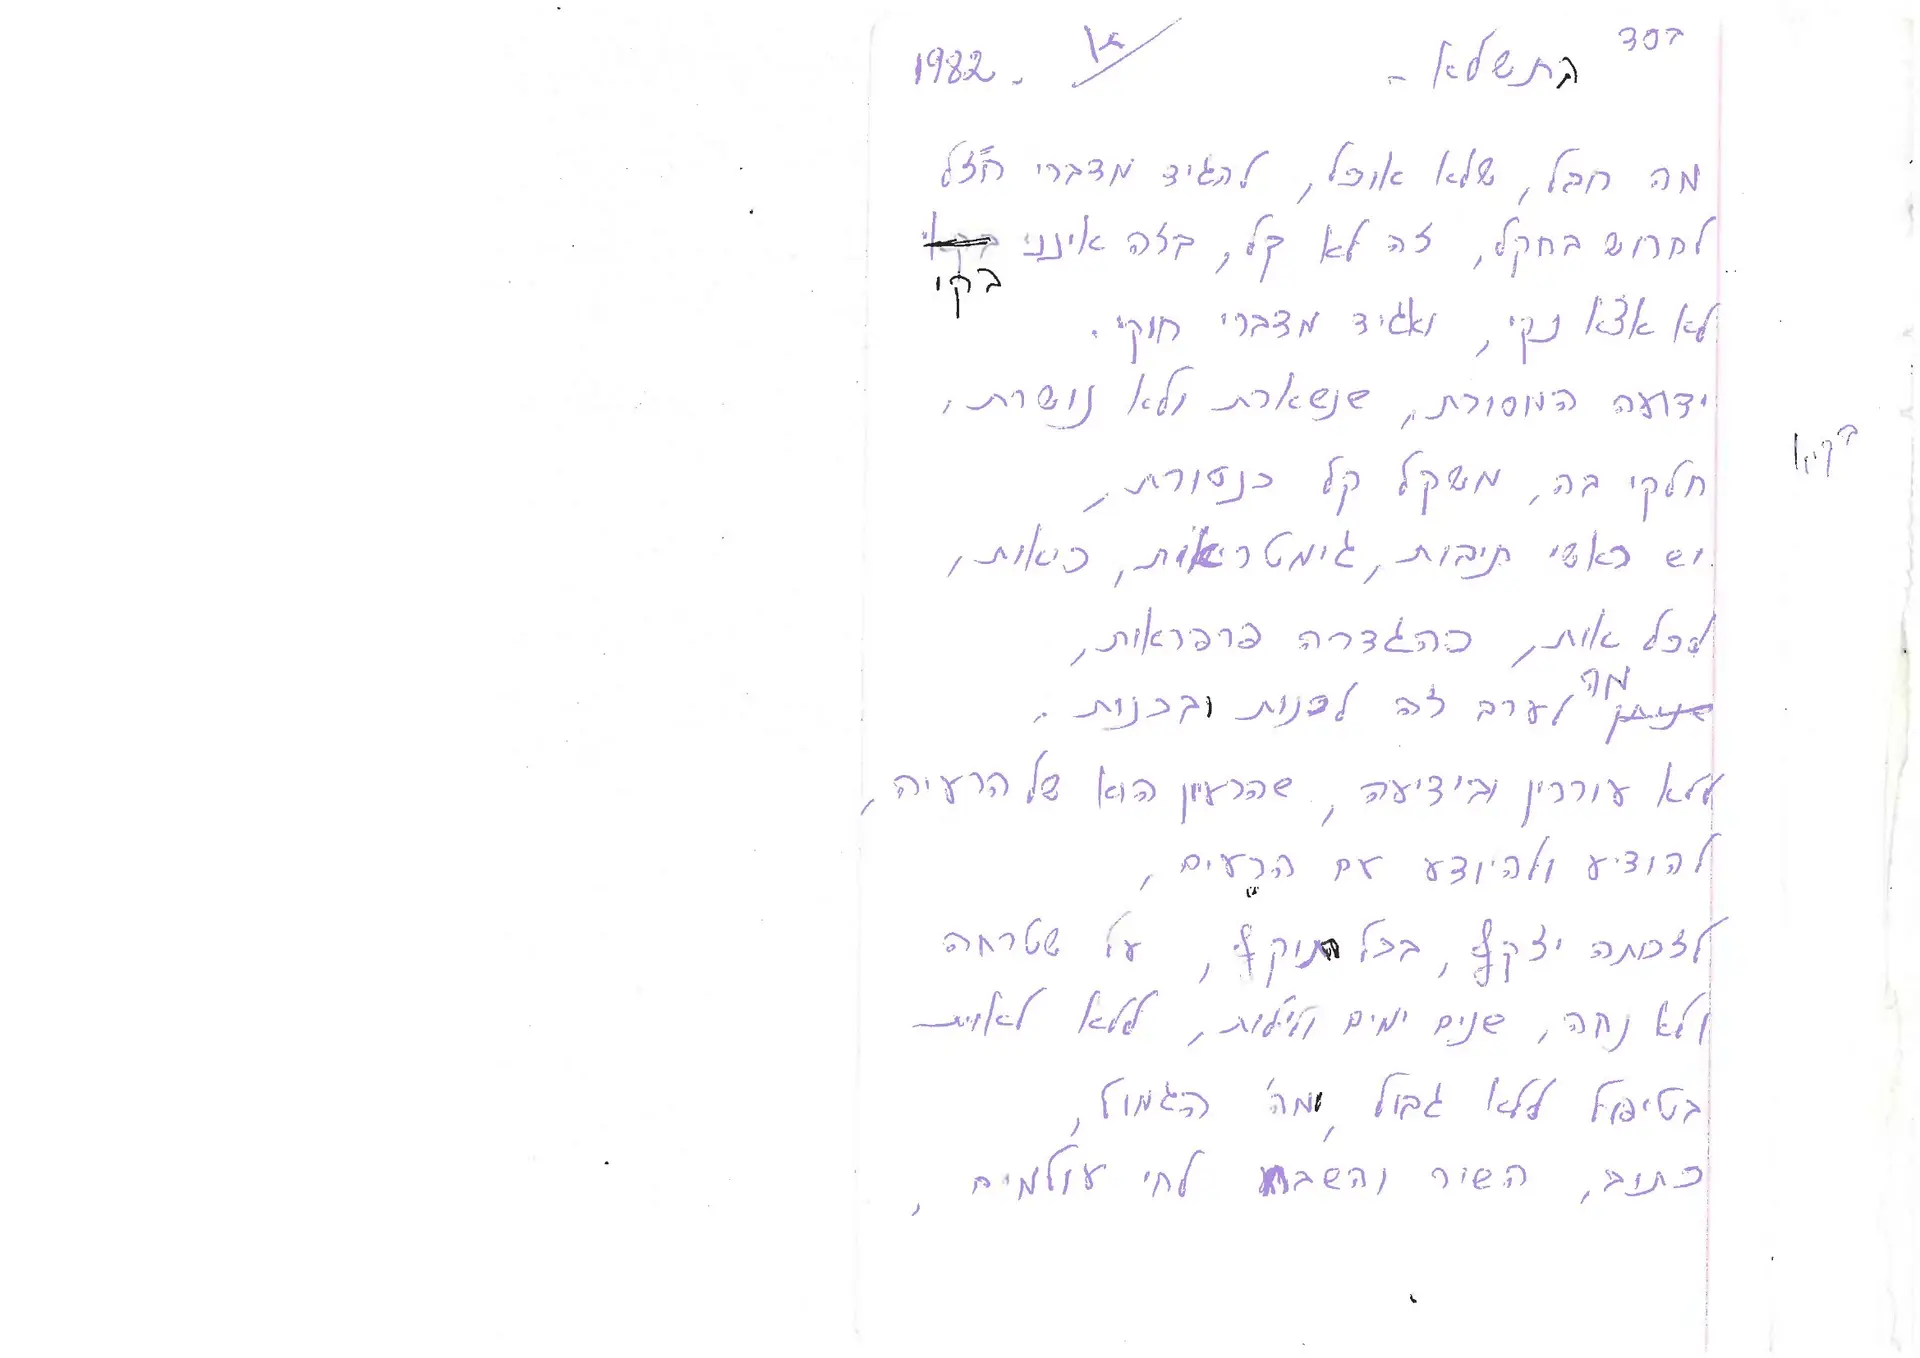 בסד
התשלא - א 1982.
מה חבל, שלא אוכל, להגיד מדברי חז"ל
לחרוש בחקל, זה לא קל, בזה אינני
בקי
לא אצא נקי, ואגיד מדברי חוקי.
ידועה המסורת, שנשארת ולא נושרת,
בקיא
חלקי בה, משקל קל כנסורת,
יש ראשי תיבות, גימטריאות, כיאות,
לכל אות, כהגדרה פרפראות,
מה לערב זה לפנות ובכנות.
ללא עוררין ובידיעה, שהרעיון הוא של הרעיה,
להודיע ולהיודע עם הרעים,
לזכותה יזקף, בכל התוקף, על שטרחה
ולא נחה, שנים ימים ולילות, ללא לאות
בטיפול ללא גבול, ומה הגמול,
כתוב, השיר והשבח לחי עולמים,